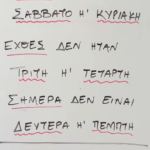 ΣΑΒΒΑΤΟ Η' ΚΥΡΙΑΚΗ
ΕΧΘΕΣ ΔΕΝ ΗΤΑΝ
ΤΡΙΤΗ Η' ΤΕΤΑΡΤΗ
ΣΗΜΕΡΑ ΔΕΝ ΕΙΝΑΙ
ΔΕΥΤΕΡΑ Η' ΠΕΜΠΤΗ